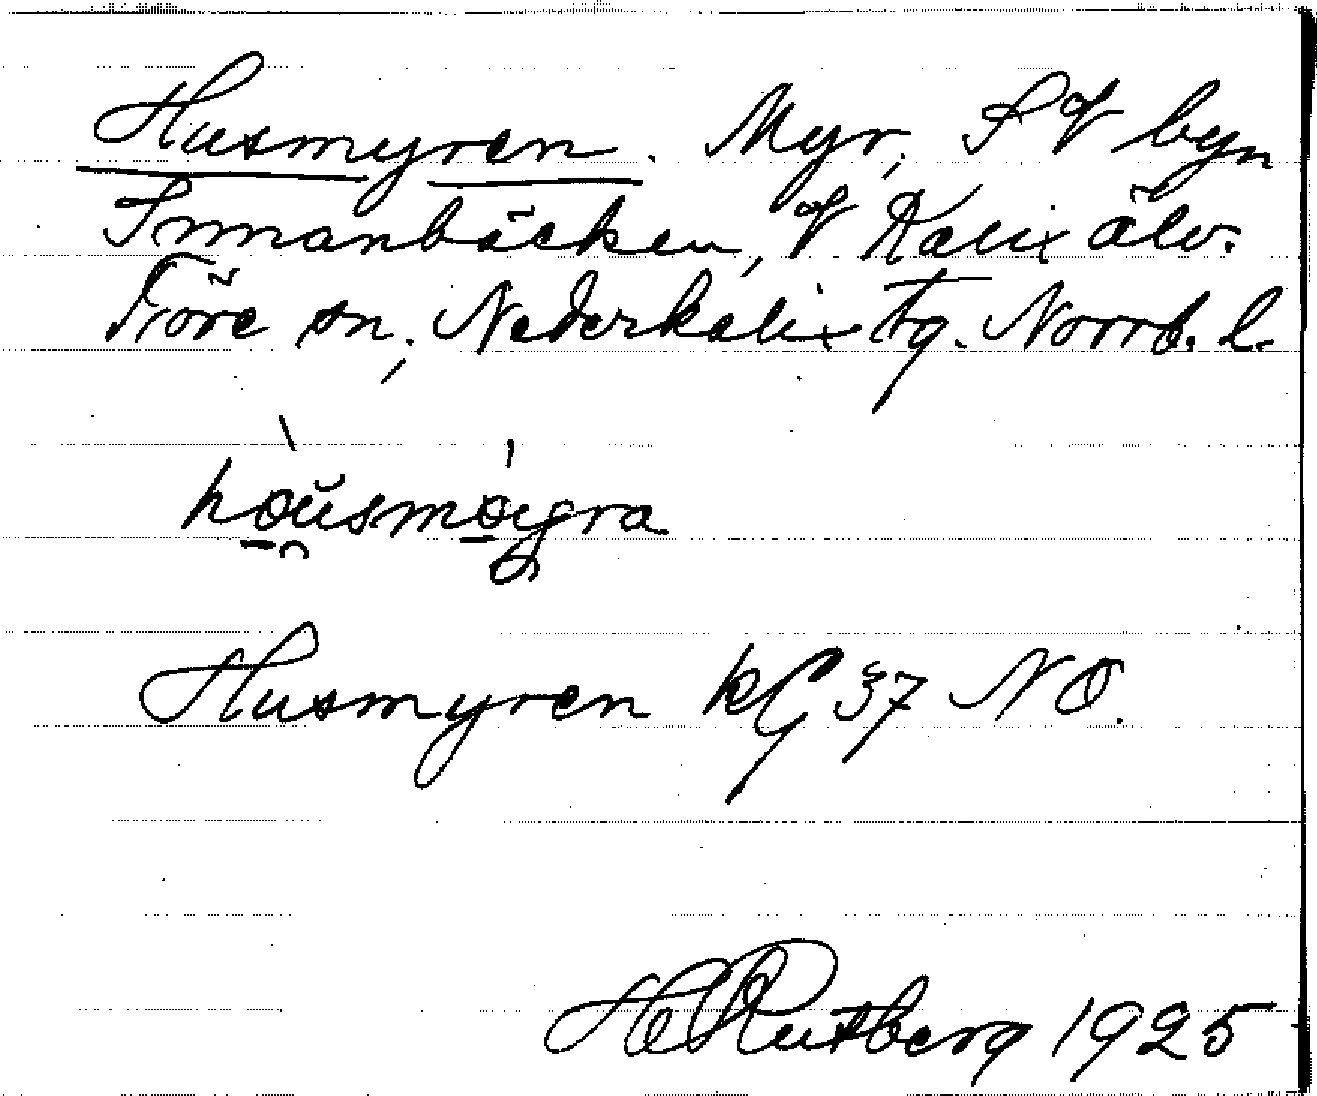 Husmyren. Myr, S V byn
Innanbäcken, V Kalix älv.
Töre sn, Nederkalix tg. Norrb. l.
housmøyra
Husmyren kG 37 NO.
H Rutberg 1925